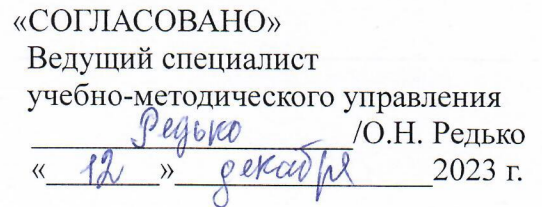 «СОГЛАСОВАНО»
Ведущий специалист
учебно-методического управления
Редько/О.Н. Редько
«12»декабря2023 г.